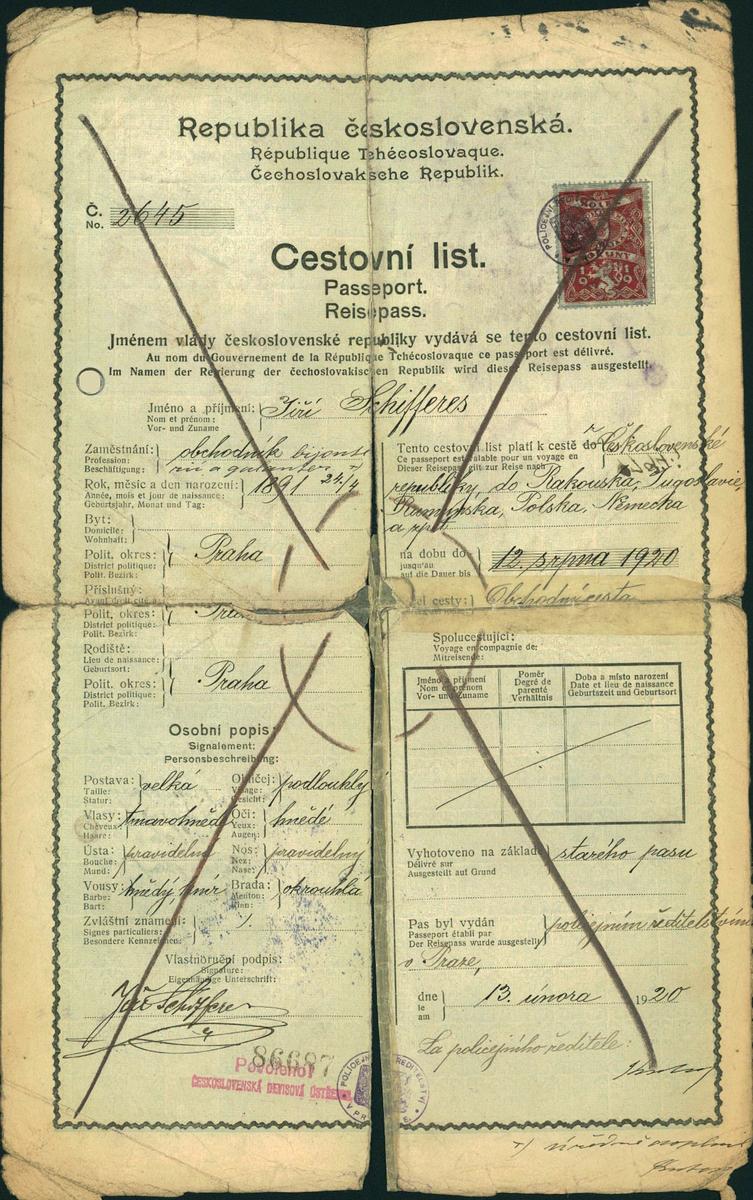 Republika československá.
République Tchécoslovaque.
Čechoslovaksche Republik.
Č.
No. 2645
Cestovní list.
Passeport.
Reisepass.
Jménem vlády československé republiky vydává se tento cestovní list.
Au nom du Gouvernement de la République Tchécoslovaque ce passeport est délivré.
Im Namen der Regierung der čechoslovakischen Republik wird dieser Reisepass ausgestellt.
Jméno a příjmení: Jiří Schifferes
Nom et prénom:
Vor- und Zuname
Zaměstnání: obchodník bijout
Profession:
Beschäftigung:
Rok, měsíc a den narození: 1891 24/4
Année, mois et jour de naissance:
Geburtsjahr, Monat und Tag:
Byt:
Domicile:
Wohnhaft:
Polit. okres: Praha
District politique:
Polit. Bezirk:
Příslušný:
Polit. okres:
District politique:
Polit. Bezirk:
Rodiště:
Lieu de naissance:
Geburtsort:
Polit. okres: Praha
District politique:
Polit. Bezirk:
Osobní popis:
Signalement:
Personsbeschreibung:
Postava: velká Obličej: podlouhlý
Taille: Visage:
Statur: Gesicht:
Vlasy: tmavohnědé Oči: hnědé
Cheveux: Yeux:
Haare: Augen:
Ústa: pravidelná Nos: pravidelný
Bouche: Nez:
Mund: Nase:
Vousy: hnědý knír Brada: okrouhlá
Barbe: Menton:
Bart: Kinn:
Zvláštní znamení:
Signes particuliers:
Besondere Kennzeichen:
Vlastnoruční podpis:
Signature:
Eigenhändige Unterschrift:
Jiří Schifferes
86687
Povoleno!
ČESKOSLOVENSKÁ DEVISOVÁ ÚSTŘE
Tento cestovní list platí k cestě do Československé
Ce passeport est valable pour un voyage en
Dieser Reisepass gilt zur Reise nach
republiky, do Rakouska, Jugoslavie,
Rumunska, Polska, Německa
a zpět
na dobu do 12. srpna 1920
jusqu'au
auf die Dauer bis
el cesty: Obchodní cesta
Spolucestující:
Voyage en compagnie de:
Mitreisende:
Jméno a příjmení
Nom et prénom
Vor- und Zuname
Poměr
Degré de parenté
Verhältnis
Doba a místo narození
Date et lieu de naissance
Geburtszeit und Geburtsort
Vyhotoveno na základě starého pasu
Délivré sur
Ausgestellt auf Grund
Pas byl vydán policejním ředitelstvím
Passeport établi par
Der Reisepass wurde ausgestellt
v Praze,
dne 13. února 1920
le
am
Za policejního ředitele: